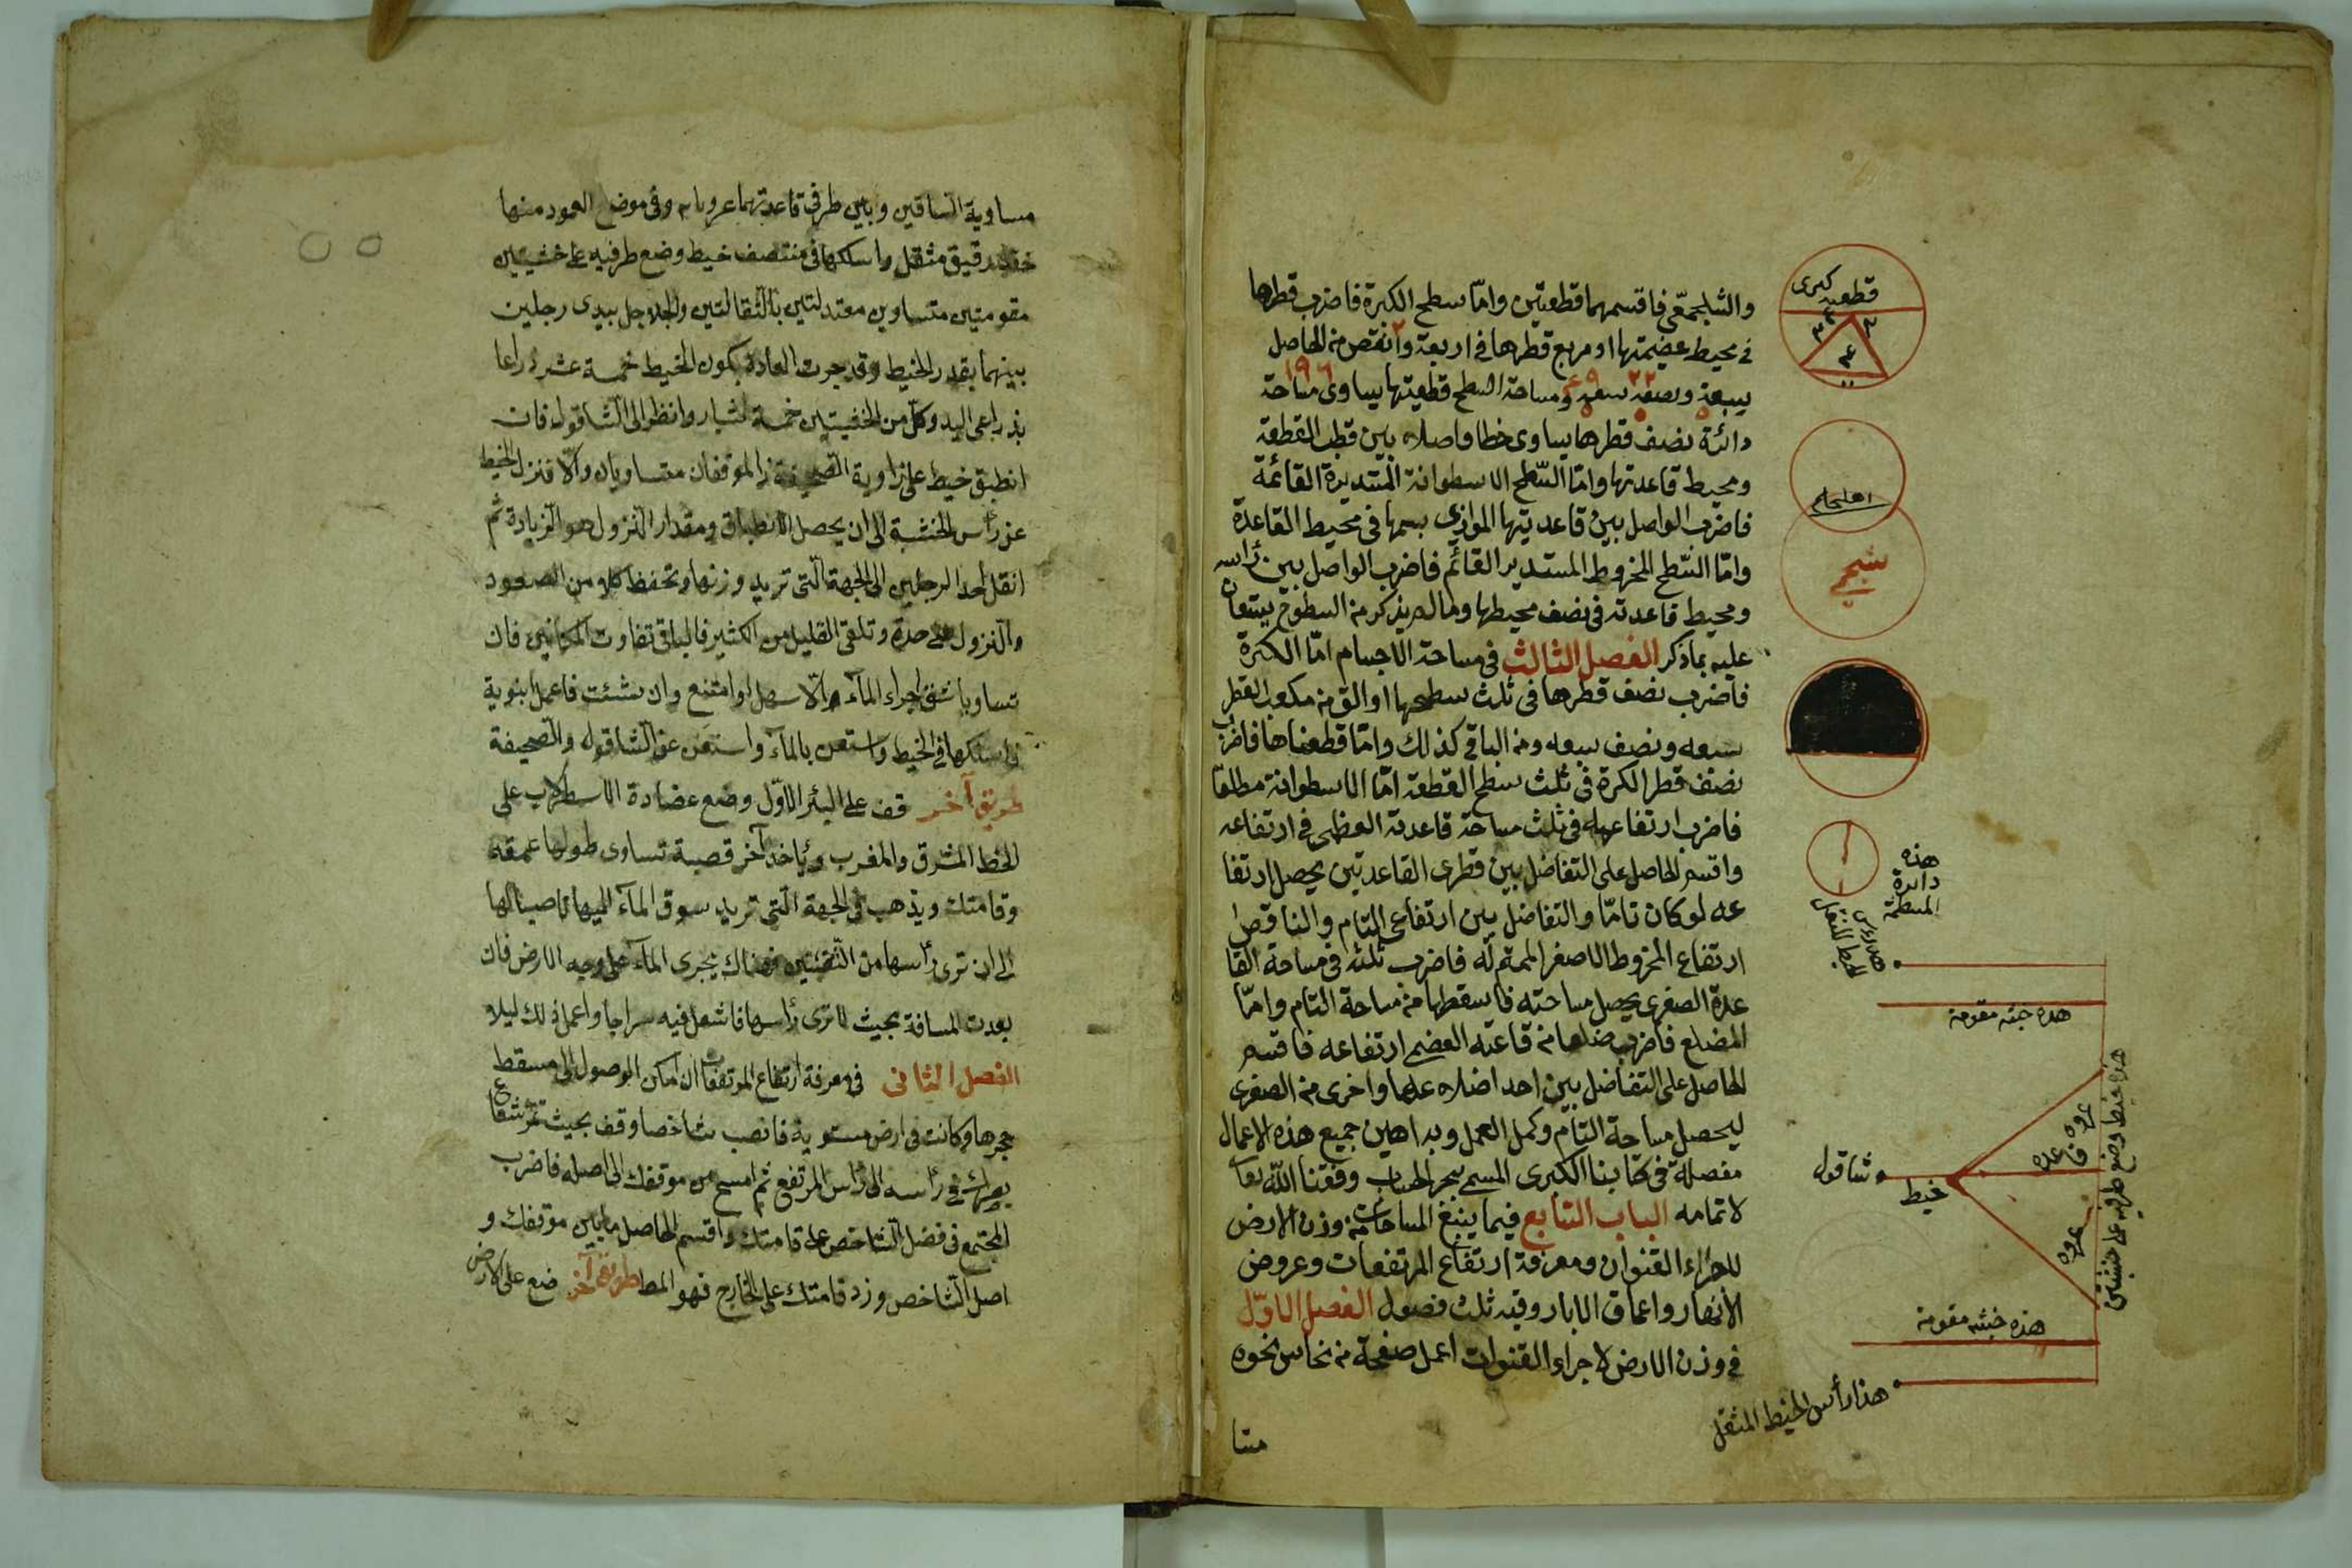 والشلجمي فاقسمهما قطعتين واما سطح الكرة فاضرب قطرها
في محيط عضيمتها او مربع قطرها في اربعة وانقص من الحاصل
سبعة ونصف سبعه ومساحة السطح قطعيتها يساوى مساحة
دائرة نصف قطرها يساوى خطا واصلا بين قطب القطعة
ومحيط قاعدتها واما السطح الاسطوانة المستديرة القائمة
فاضرب الواصل بين قاعديتها الموازي بسهمها في محيط القاعدة
واما السطح المخروط المستدير القائم فاضرب الواصل بين رأسه
ومحيط قاعدته في نصف محيطها وما لم يذكر من السطوح يستعان
عليه بما ذكر الفصل الثالث في مساحة الاجسام اما الكرة
فاضرب نصف قطرها في ثلث سطحها او الق من مكعب القطر
سبعه ونصف سبعه ومن الباقي كذلك واما قطعتاها فاضرب
نصف قطر الكرة في ثلث سطح القطعة اما الاسطوانة مطلقا
فاضرب ارتفاعها في ثلث مساحة قاعدته العظمى في ارتفاعه
واقسم الحاصل على التفاضل بين قطرى القاعدتين يحصل ارتفا
عه لو كان تاما والتفاضل بين ارتفاعى التام والناقص
ارتفاع المخروط الاصغر المتمم له فاضرب ثلثه في مساحة القا
عدة الصغرى يحصل مساحته فاسقطها من مساحة التام واما
المضلع فاضرب ضلعا من قاعته العضمى ارتفاعه فاقسم
الحاصل على التفاضل بين احد اضلاعها واخرى من الصغرى
ليحصل مساحة التام وكمل العمل وبراهين جميع هذه الاعمال
مفصلة في كتابنا الكبرى المسمى ببحر الحساب وفقنا الله تعا
لاتمامه الباب السابع فيما يتبع المساحات من وزن الارض
لاجراء القنوان ومعرفة ارتفاع المرتفعات وعروض
الأنهار واعماق الابار وفيه ثلث فصول الفصل الاول
في وزن الارض لاجراء القنوات اعمل صفحة من نحاس نحوه
متسا
قطعه كبرى
اهليلجى
شلجمي
هذه
دائرة
المسطحة
هذه خشبه مقومة
هذا خيط وضع طرفيه على خشبتين
عروه
قاعده
عروه
شاقول
خيط
هذه خشبه مقومة
هذا رأس الخيط المثقل
مساوية الساقين وبين طرفي قاعدتهما عروتان وفي موضع العمود منها
خيط رقيق مثقل واسلكها في منتصف خيط وضع طرفيه على خشبتين
مقومتين متساوين معتدلتين بالثقالتين والجلاجل بيدى رجلين
بينهما بقدر الخيط وقد جرت العادة بكون الخيط خمسة عشر ذراعا
بذراعى اليد وكل من الخشبتين خمسة اشبار وانظر الى الشاقول فان
انطبق خيط على زاوية الصحيفة فالموقفان متساويان والا فنزل الخيط
عن رأس الخشبة الى ان يحصل الانطباق ومقدار النزول هو الزيادة ثم
انقل احد الرجلين الى الجهة التى تريد وزنها وتحفظ كلا من الصعود
والنزول على حدة وتلقى القليل من الكثير فالباقى تفاوت المكانين فان
تساويا شق اجراء الماء والا سهل او امتنع وان شئت فاعمل انبوبة
فاسلكها في الخيط واستعن بالماء واستغن عن الشاقول والصحيفة
طريق آخر قف على البئر الاول وضع عضادة الاسطرلاب على
الخط المشرق والمغرب ويأخذ آخر قصبة تساوى طولها عمقه
وقامتك ويذهب في الجهة التى تريد سوق الماء اليها ناصبا لها
الى ان ترى رأسها من الثقبتين فهناك يجرى الماء على وجه الارض فان
بعدت المسافة بحيث لا ترى رأسها فاشعل فيه سراجا واعمل ذلك ليلا
الفصل الثانى في معرفة ارتفاع المرتفعات ان امكن الوصول الى مسقط
حجرها وكانت في ارض مستوية فانصب شاخصا وقف بحيث تمر شعاع
بصرك في رأسه الى رأس المرتفع ثم امسح من موقفك الى اصله فاضرب
المجتمع في فضل الشاخص على قامتك واقسم الحاصل ما بين موقفك و
اصل الشاخص وزد قامتك على الخارج فهو المط طريق آخر ضع على الارض